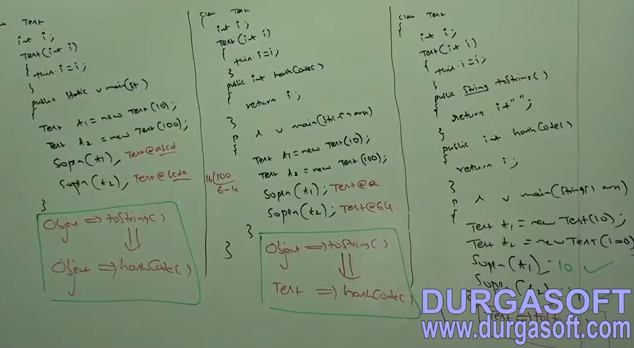 class Test
int i;
Test(int i)
{ this.i=i;
}
public static v main(St)
{
Test t1 = new Test(10);
Test t2 = new Test(100);
Sopln(t1); Test@
Sopln(t2); Test@
}
Object => toString()
Object => hashCode()
class Test
{
int i;
Test(int i)
{
this.i=i;
}
public int hashCode()
{
return i;
}
p s v main(String[] args)
{
Test t1 = new Test(10);
Test t2 = new Test(100);
Sopln(t1); Test@a
Sopln(t2); Test@64
}
}
16/100
6-4
Object => toString()
Test => hashCode()
class Test
{
int i;
Test(int i)
{
this.i=i;
}
public String toString()
{
return i+"";
}
public int hashCode()
{
return i;
}
p s v main(String[] args)
{
Test t1 = new Test(10);
Test t2 = new Test(100)
Sopln(t1); 10 ✓
Sopln(t2);
Test =>
DURGASOFT
www.durgasoft.com